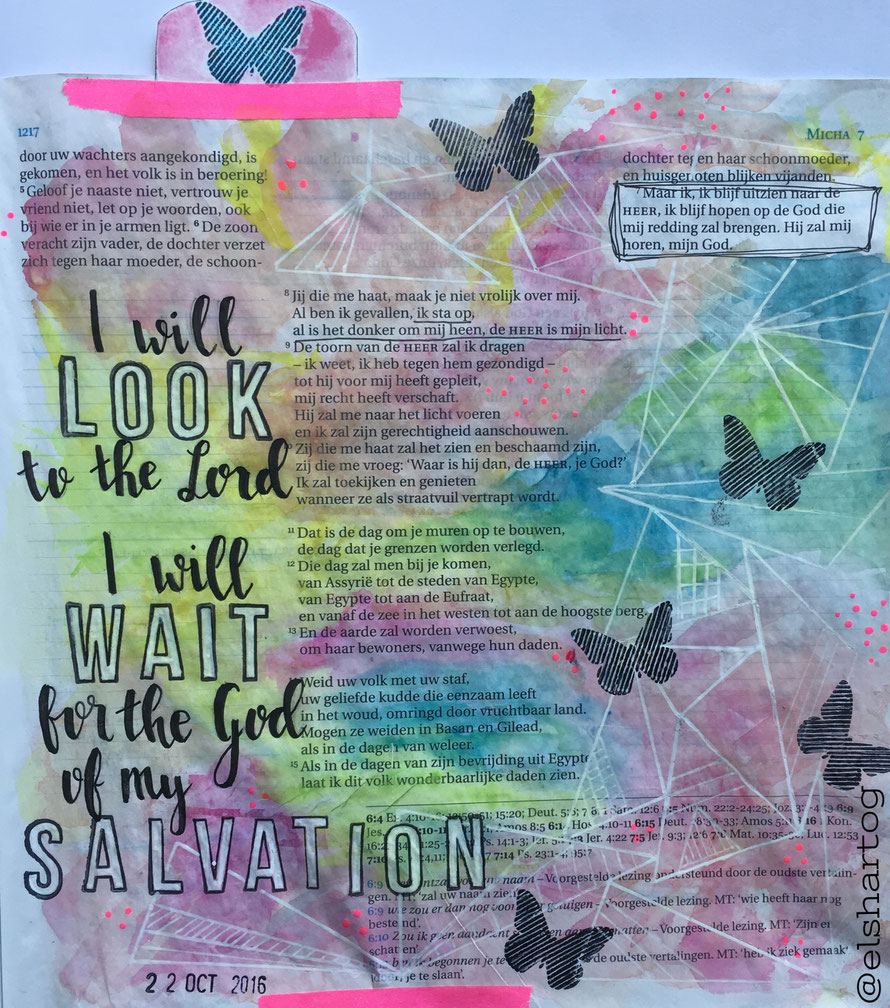 1217
MICHA 7
door uw wachters aangekondigd, is
gekomen, en het volk is in beroering!
5 Geloof je naaste niet, vertrouw je
vriend niet, let op je woorden, ook
bij wie er in je armen ligt. 6 De zoon
veracht zijn vader, de dochter verzet
zich tegen haar moeder, de schoon-
dochter tegen haar schoonmoeder,
en huisgenoten blijken vijanden.
7 Maar ik, ik blijf uitzien naar de
HEER, ik blijf hopen op de God die
mij redding zal brengen. Hij zal mij
horen, mijn God.
I will
LOOK
to the Lord
I will
WAIT
for the God
of my
SALVATION
8 Jij die me haat, maak je niet vrolijk over mij.
Al ben ik gevallen, ik sta op,
al is het donker om mij heen, de HEER is mijn licht.
9 De toorn van de HEER zal ik dragen
– ik weet, ik heb tegen hem gezondigd –
tot hij voor mij heeft gepleit,
mij recht heeft verschaft.
Hij zal me naar het licht voeren
en ik zal zijn gerechtigheid aanschouwen.
Zij die me haat zal het zien en beschaamd zijn,
zij die me vroeg: ‘Waar is hij dan, de HEER, je God?’
Ik zal toekijken en genieten
wanneer ze als straatvuil vertrapt wordt.
11 Dat is de dag om je muren op te bouwen,
de dag dat je grenzen worden verlegd.
12 Die dag zal men bij je komen,
van Assyrië tot de steden van Egypte,
van Egypte tot aan de Eufraat,
en vanaf de zee in het westen tot aan de hoogste berg.
13 En de aarde zal worden verwoest,
om haar bewoners, vanwege hun daden.
Weid uw volk met uw staf,
uw geliefde kudde die eenzaam leeft
in het woud, omringd door vruchtbaar land.
Mogen ze weiden in Basan en Gilead,
als in de dagen van weleer.
15 Als in de dagen van zijn bevrijding uit Egypte
laat ik dit volk wonderbaarlijke daden zien.
6:4 4:10 15:20; Deut. 12:6 Num. 22:2-24:25; Joz.
Jes. Amos 8:5 6:1 4:10-11 6:15 Deut. Amos 5:11 6:16 1 Kon.
14:1-3; Jer. 4:22 7:5 Jer. 9:3; 12:6 Mat. 10:35-36; Luc. 12:53
7:14 Ps. 23:1-4; 95:7
6:9 – Voorgestelde lezing, ondersteund door de oudste vertalin-
gen. MT: ‘zal uw naam zien’
6:9 – Voorgestelde lezing. MT: ‘wie heeft haar nog
bestemd’.
6:10 Zou ik geen aandacht – Voorgestelde lezing. MT: ‘Zijn er
schatten’.
begonnen je te de oudste vertalingen. MT: ‘heb ik ziek gemaakt
door, je te slaan’.
22 OCT 2016
@elshartog